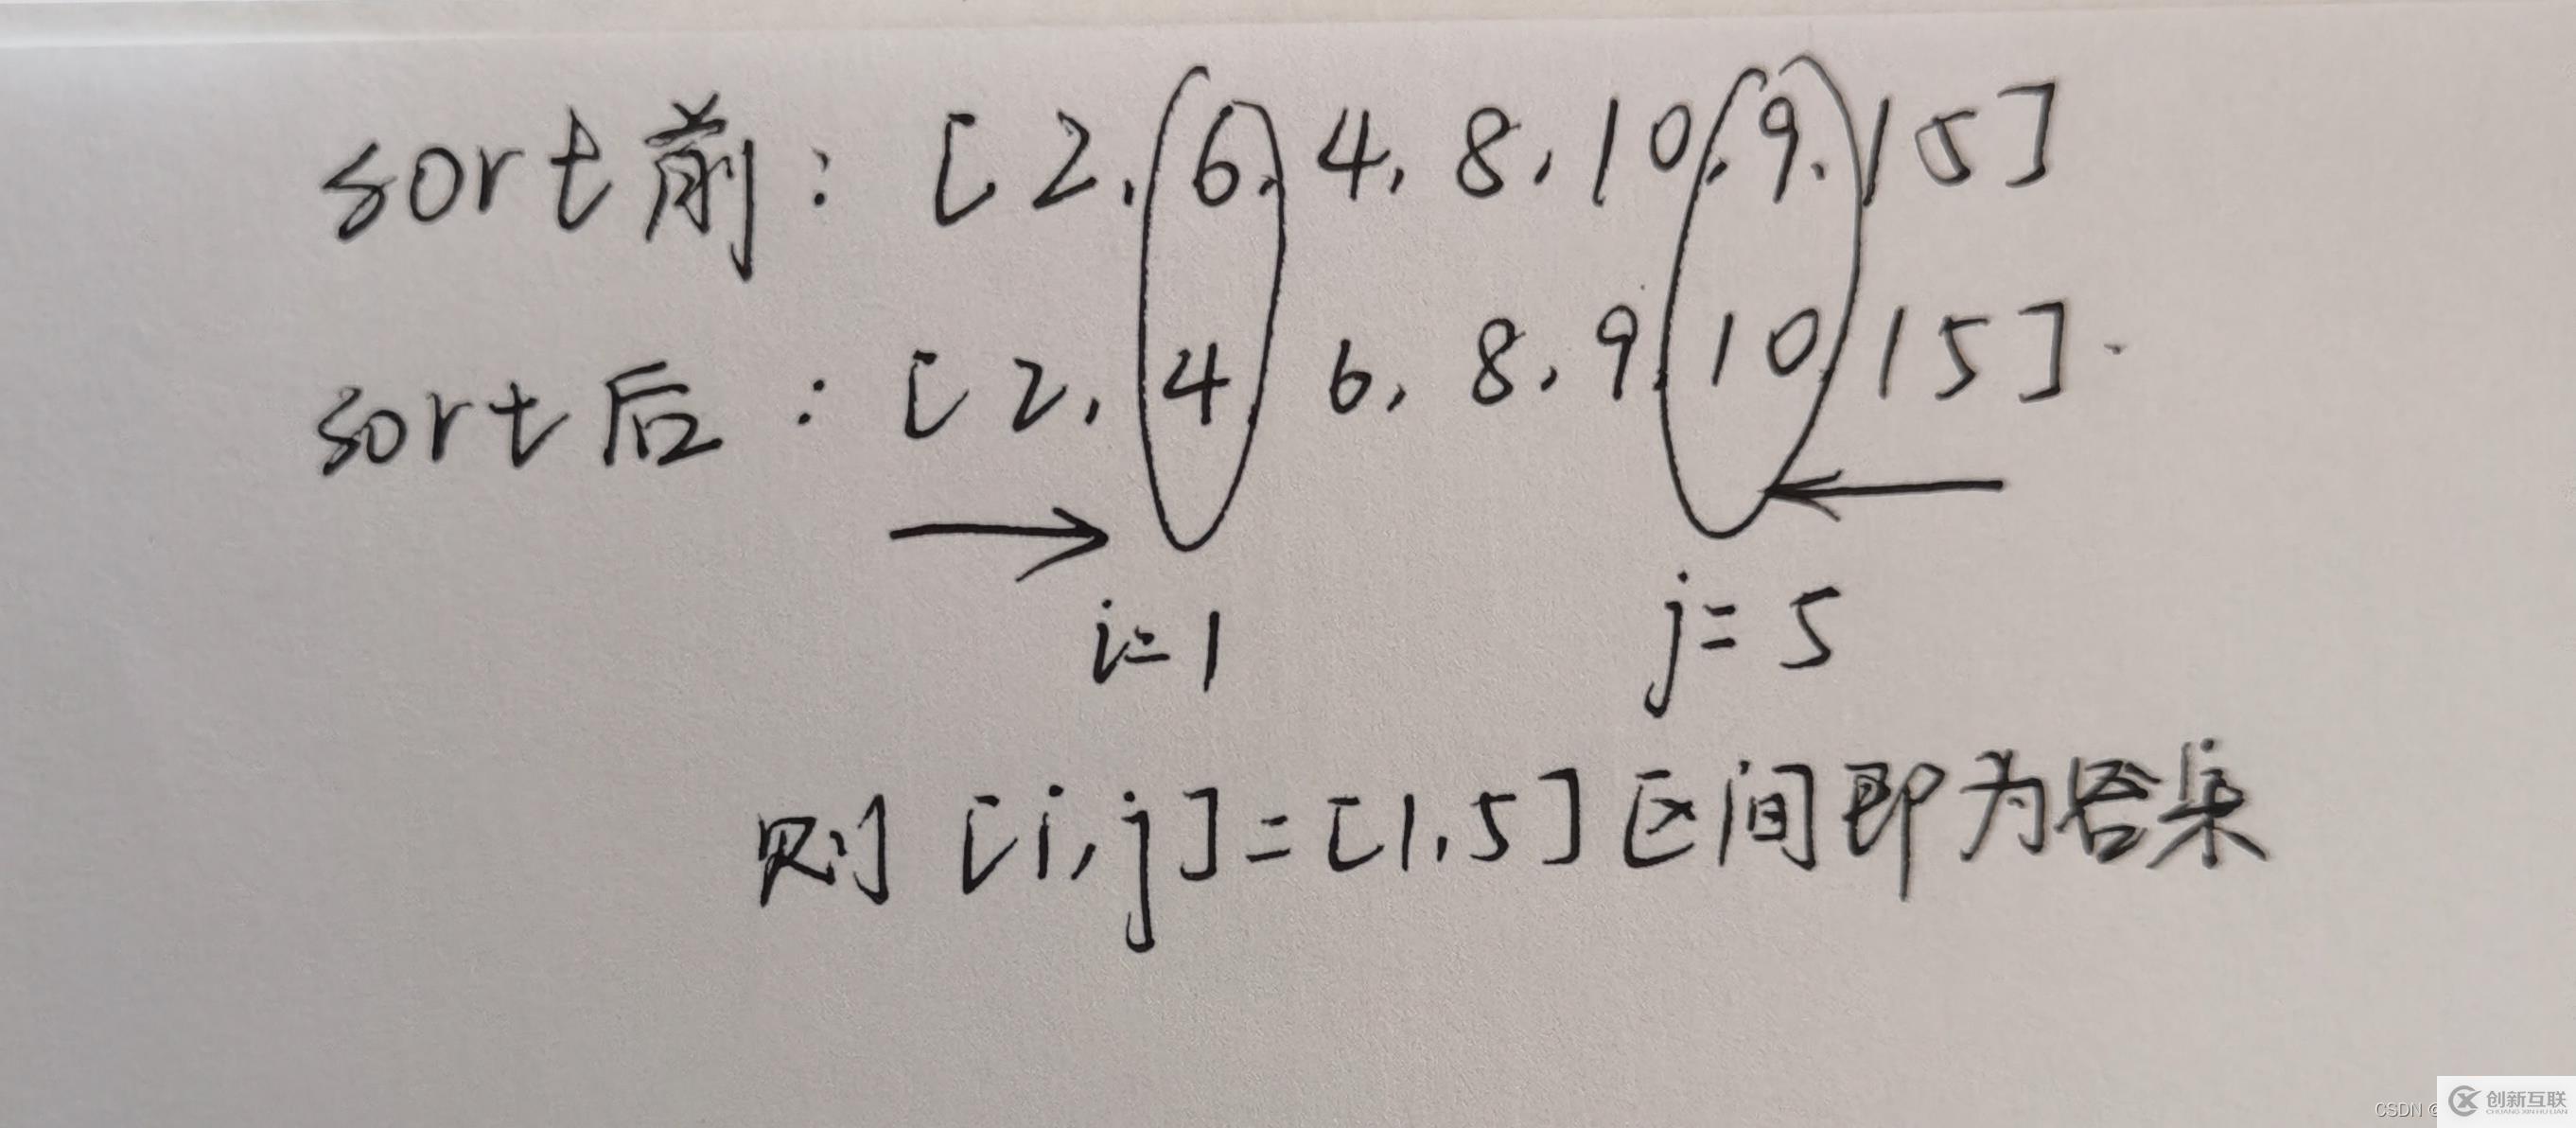 sort前：[2,6,4,8,10,9,15]
sort后：[2,4,6,8,9,10,15]
i=1 j=5
则[i,j]=[1,5]区间即为答集
CSDN @
创新互联
CHUANG XIN HU LIAN